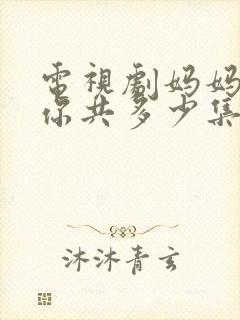 電視劇妈妈
你共多少集
沐沐青玄